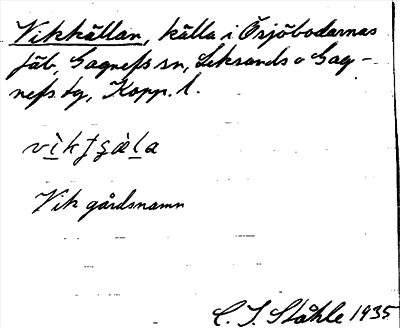 Vikkällan, källa i Ösjöbodarnas
fäb, Gagnefs sn, Leksands o Gag-
nefs tg, Kopp. l.
Vik gårdsnamn
C. I. Ståhle 1935